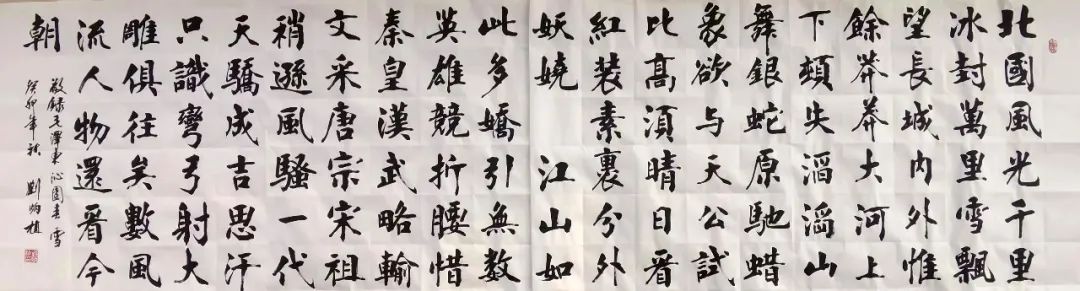 北國風光千里
冰封萬里雪飄
望長城内外惟
餘莽莽大河上
下頓失滔滔山
舞銀蛇原馳蜡
象欲与天公試
比高須晴日看
紅装素裹分外
妖嬈 江山如
此多嬌引無数
英雄競折腰惜
秦皇漢武略輸
文采唐宗宋祖
稍遜風騷一代
天驕成吉思汗
只識彎弓射大
雕俱往矣數風
流人物還看今
朝
敬録毛澤東沁園春雪
癸卯年秋 劉炳植